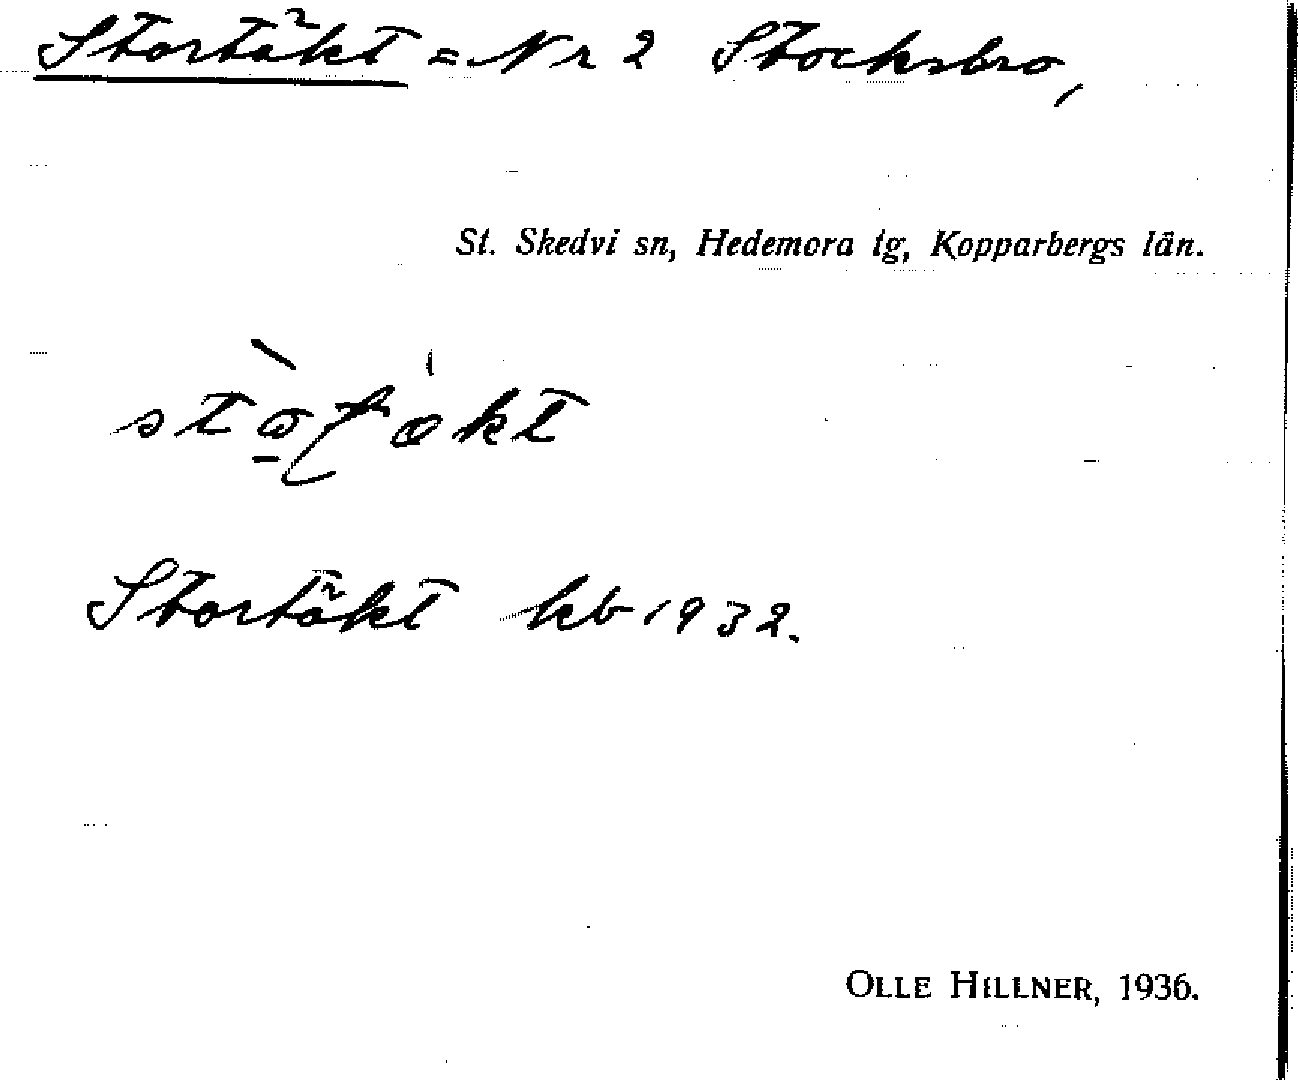 Stortäkt = Nr 2 Stocksbro,
St. Skedvi sn, Hedemora tg, Kopparbergs län.
Stortäkt kb 1932.
OLLE HILLNER, 1936.